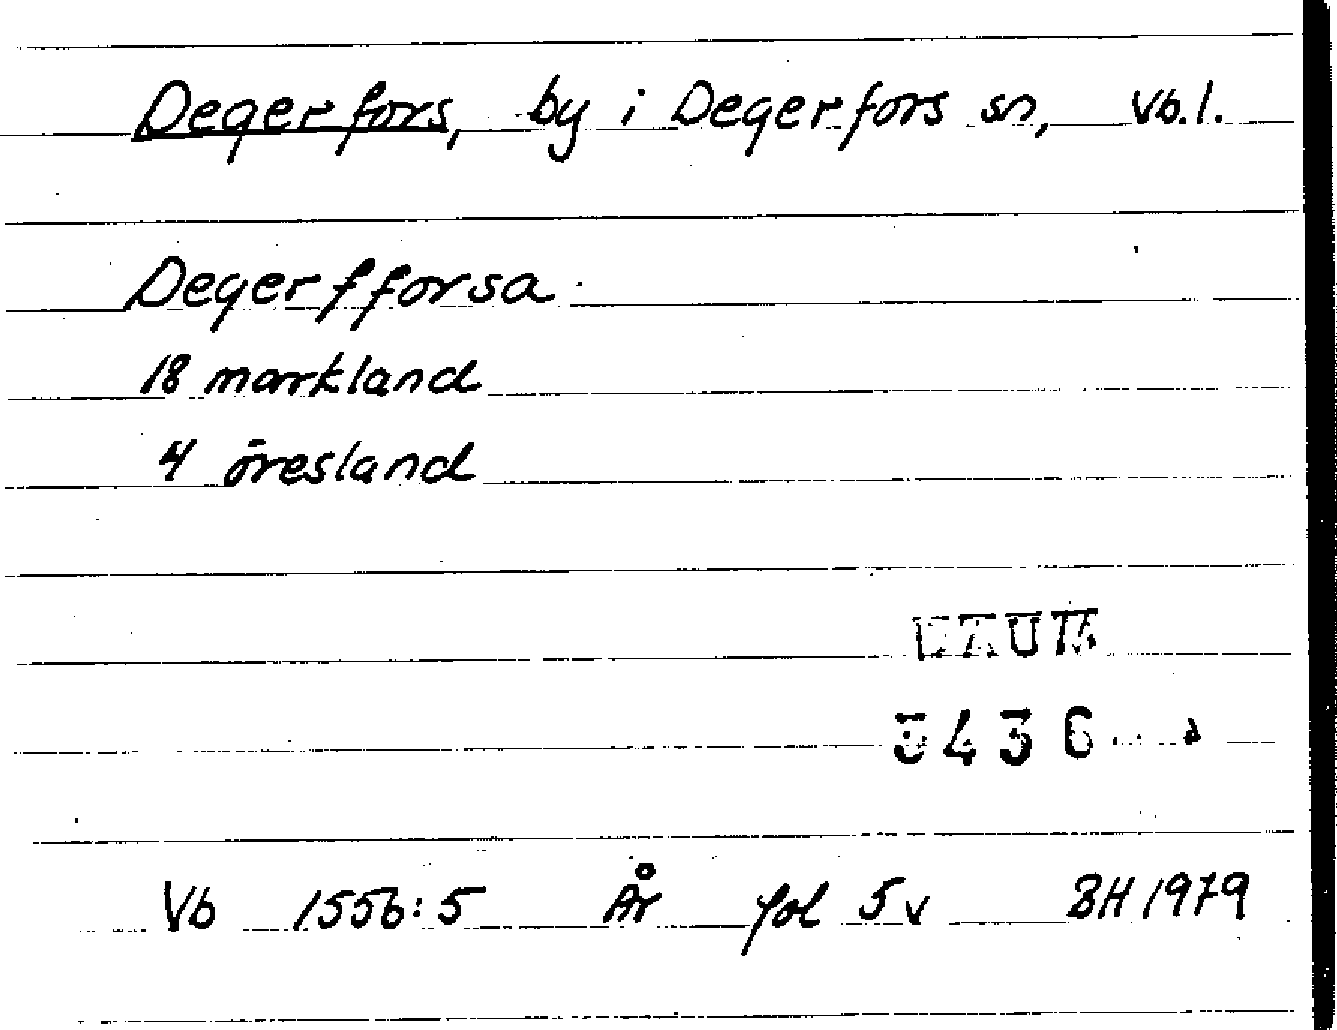 Degerfors, by i Degerfors sn, Vb.l.
Degerfforsa
18 markland
4 öresland
DAUM
5436
Vb 1556:5 År fol 5v BH 1979